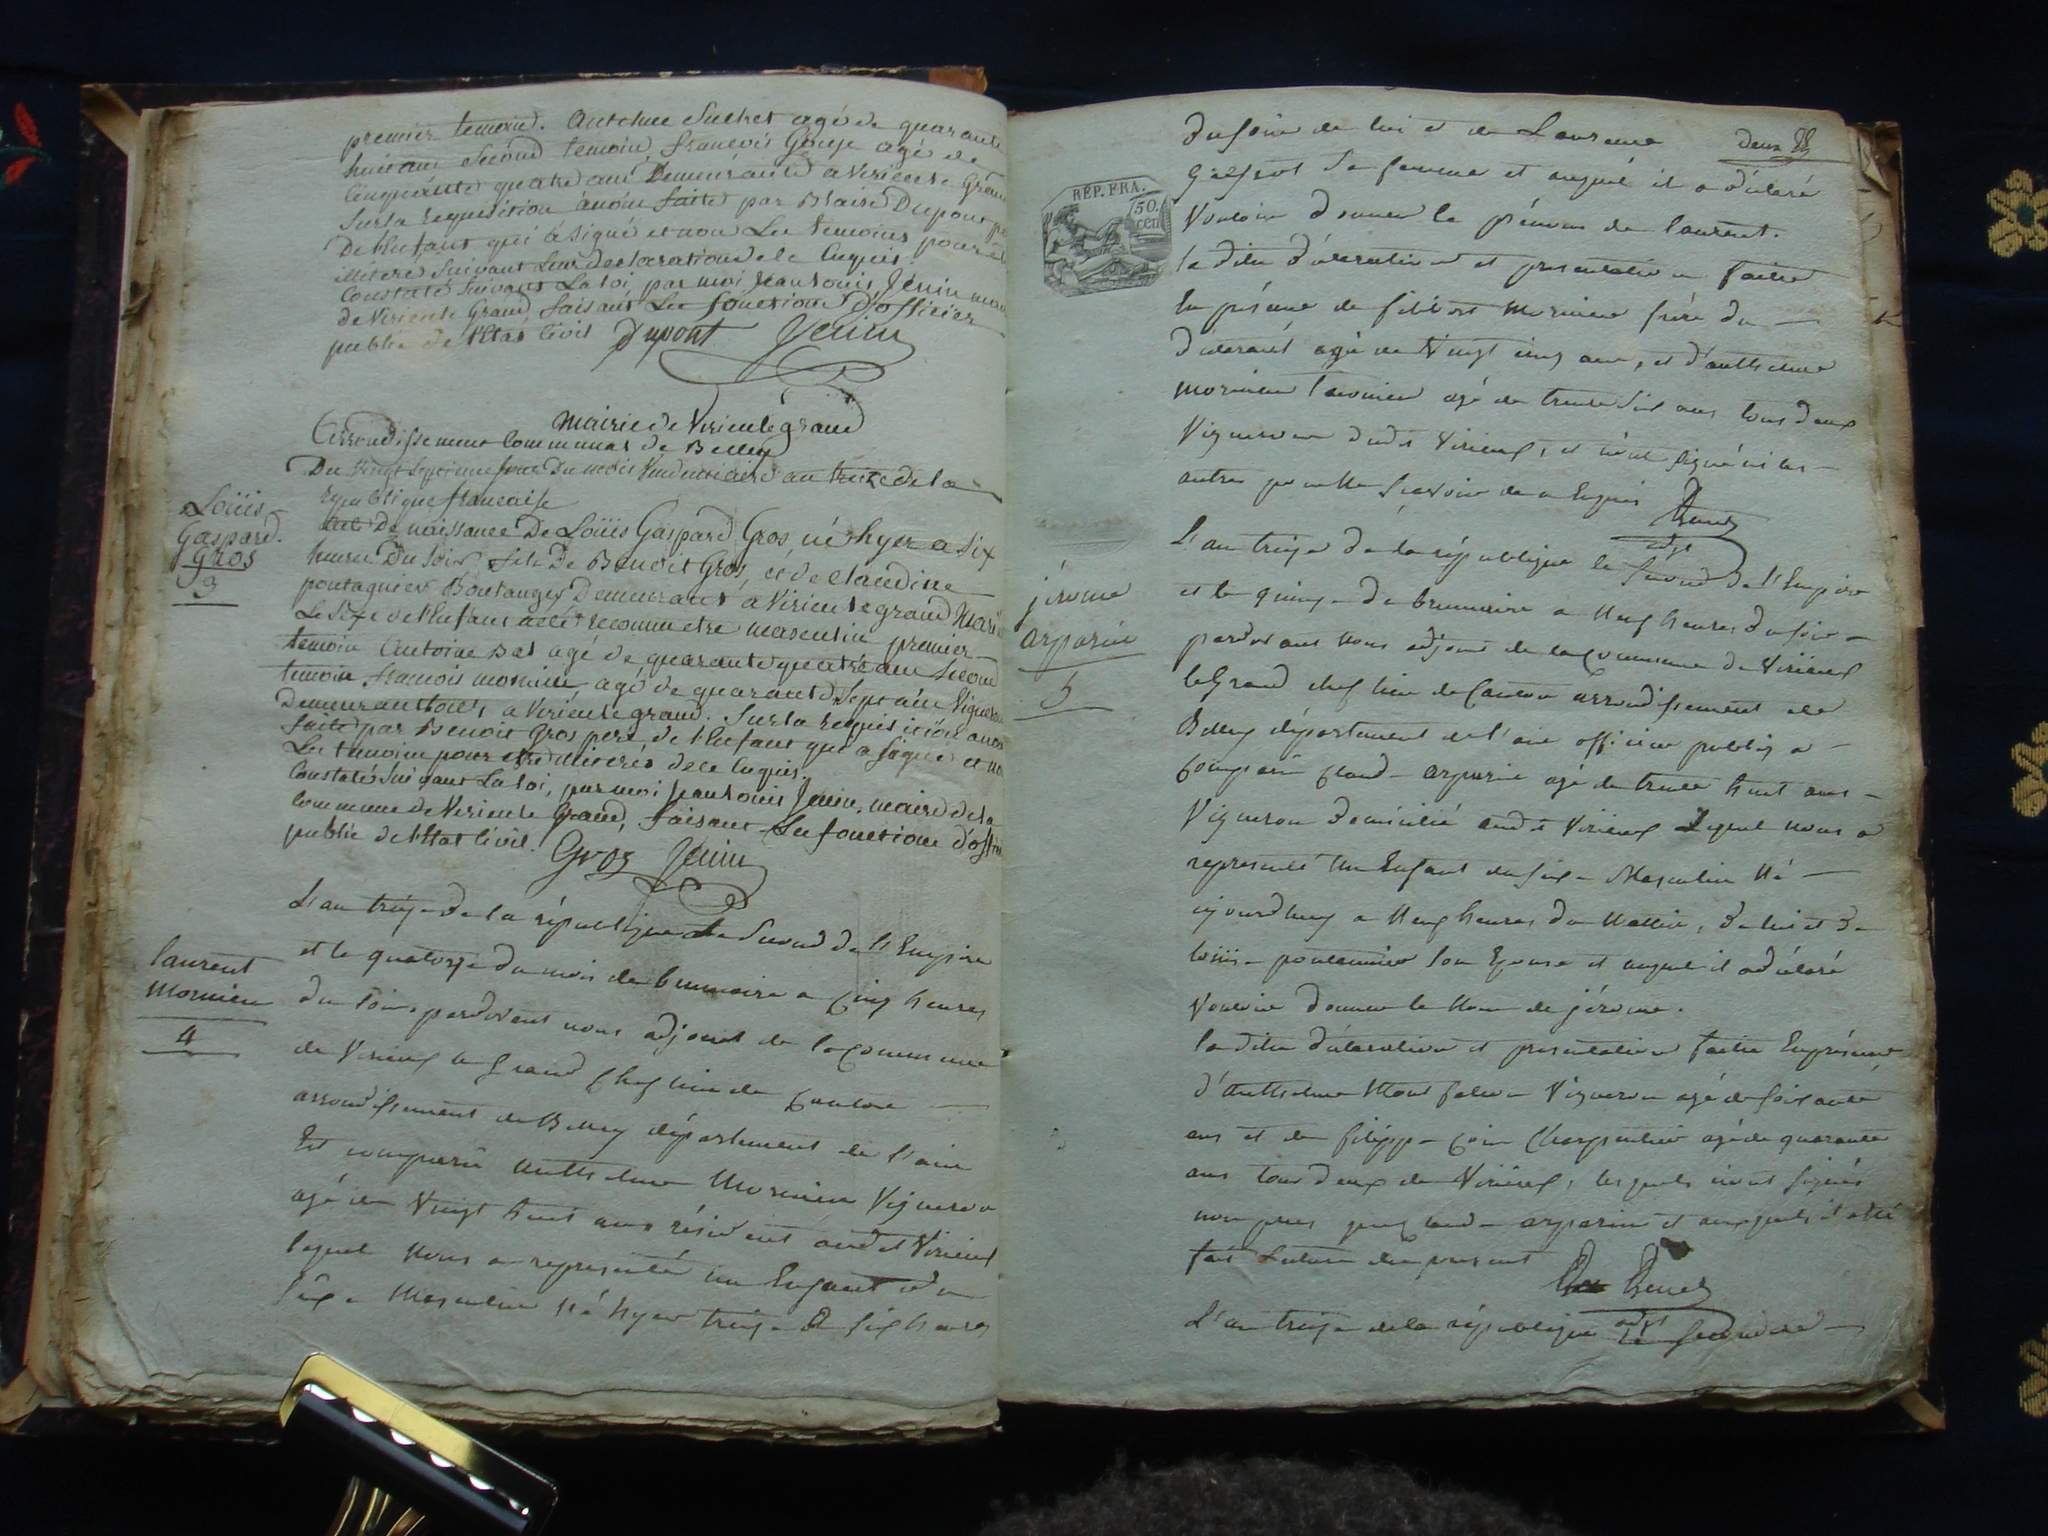 premier temoin. Antelme Suchet agé de quarante
huit ans Second temoin, francois Gouje agé de
Cinquante quatre ans Demeurants a Virieu le Grand
Sur la requisition a nous faite par Blaise Dupont
De l'enfant qui a signé et non Les temoins pour
illiteré Suivant Leur declaration de le Enquis.
Constaté Suivant La loi, par moi Jean Louis Jenin
de Virieu le Grand faisant Les fonctions d'officier
public de l'etat Civil Dupont Jenin
Mairie de Virieu le grand
Arrondissement Communal de Belley
Du vingt septieme jour Du mois Vendemiaire an treize de la
republique francaise
Louis
Gaspard
Gros
3
De naissance De Louis Gaspard Gros, né hyer a Six
heures Du Soir, fils De Benoit Gros, et de Claudine
Boulanger Demeurant a Virieu le grand
Le Sexe de l'enfant a été reconnu etre masculin premier
temoin Antoine agé de quarante quatre ans Second
temoin francois mornieu agé de quarante Sept ans
Demeurant tous a Virieu le grand. Sur la requisition a nous
faite par Benoit Gros pere de l'enfant qui a signé et
Les temoins pour etre illiterés de le enquis.
Constaté Suivant La loi, par moi Jean Louis Jenin, maire de la
Commune de Virieu le Grand, faisant Les fonctions d'
public de l'etat Civil. Gros Jenin
L'an treize de la république le Second de l'Empire
laurent
Mornieu
4
et le quatorze du mois de brumaire a cinq heures
du soir, pardevant nous adjoint de la commune
de Virieux le Grand Chef lieu de Canton
arrondissement de Belley département de l'ain
Est comparu Anthelme Mornieu Vigneron
agé de Vingt huit ans résident audit Virieux
lequel nous a representé un Enfant du
Sexe Masculin né hyer treize a six heures
deux
du soir de lui et de Laurence
sa femme et auquel il a déclaré
REP. FRA.
50
cen
Vouloir donner le prénom de laurent.
la dite déclaration et presentation faite
En présence de filibert Mornieu frère du
déclarant agé de Vingt cinq ans, et d'anthelme
Mornieu agé de trente six ans tous deux
Vignerons dudit Virieux, et n'ont signé ni les
autres pour ne le scavoir de ce Enquis
L'an treize de la république le Second de l'Empire
adjt
jérome
arparin
5
et le quinze de brumaire a Neuf heures du soir
pardevant nous adjoint de la commune de Virieux
le Grand chef lieu de Canton arrondissement de
Belley département de l'ain officier public a
comparu Claude arparin agé de trente huit ans
Vigneron domicilié audit Virieux Lequel nous a
representé un Enfant du sexe Masculin Né
ajourdhuy a Neuf heures du Mattin, de lui et de
son Epouse et auquel il a déclaré
Vouloir donner le nom de jérome.
la dite déclaration et presentation faitte En présence
d'anthelme Vigneron agé de soixante
ans et de filippe Charpentier agé de quarante
ans tous deux de Virieux, les quels n'ont signés
non plus que Claude arparin et auxquels il a été
fait Lecture du present
adjt
L'an treize de la république le Second de